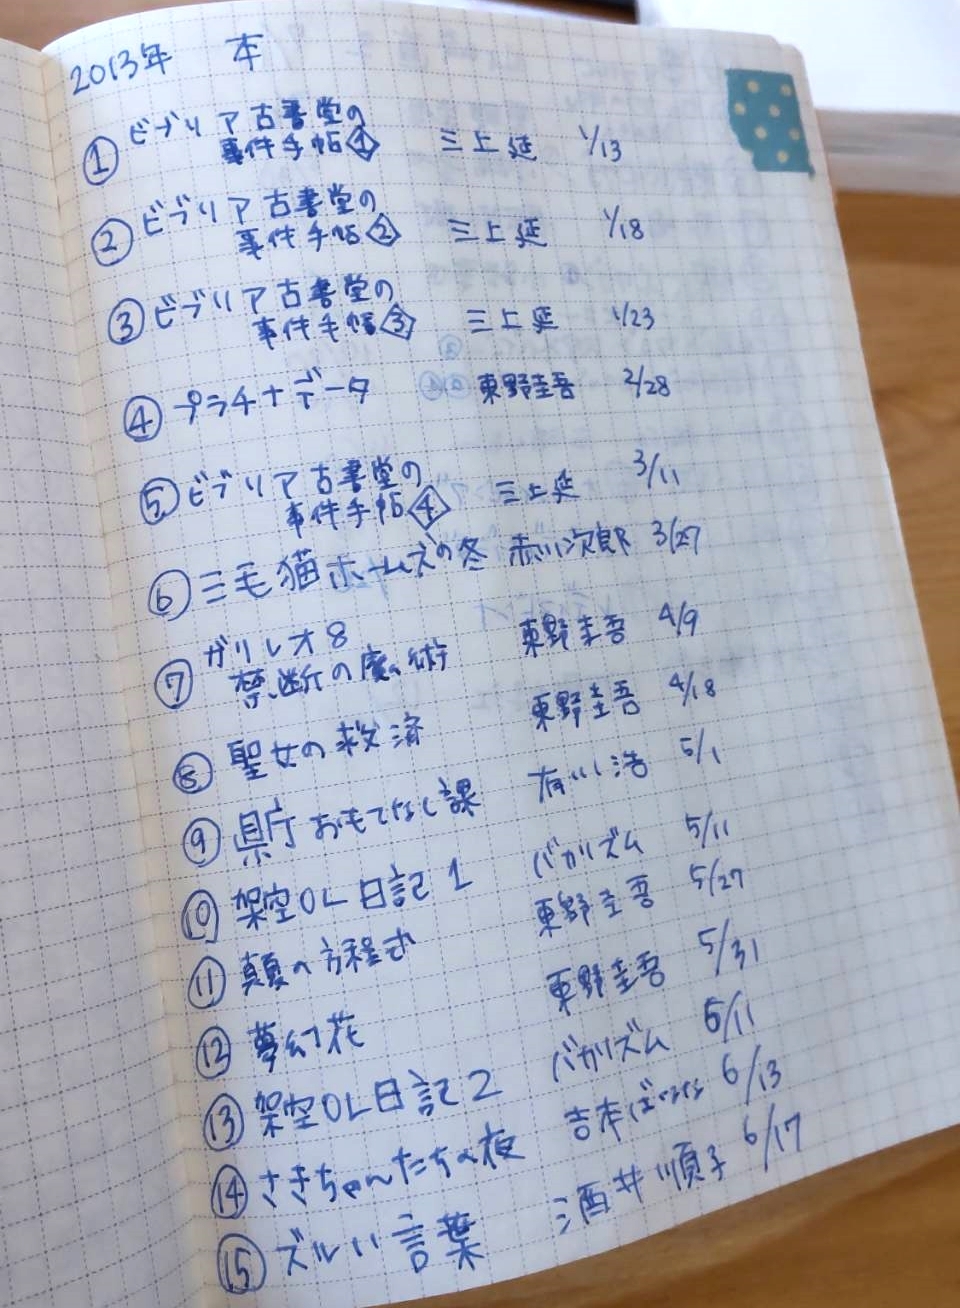 2013年 本
① ビブリア古書堂の
事件手帖① 三上延 1/13
② ビブリア古書堂の
事件手帖② 三上延 1/18
③ ビブリア古書堂の
事件手帖③ 三上延 1/23
④ プラチナデータ 東野圭吾 2/28
⑤ ビブリア古書堂の
事件手帖④ 三上延 3/11
⑥ 三毛猫ホームズの冬 赤川次郎 3/27
⑦ ガリレオ8
禁断の魔術 東野圭吾 4/9
⑧ 聖女の救済 東野圭吾 4/18
⑨ 県庁おもてなし課 有川浩 5/1
⑩ 架空OL日記1 バカリズム 5/11
⑪ 真夏の方程式 東野圭吾 5/27
⑫ 夢幻花 東野圭吾 5/31
⑬ 架空OL日記2 バカリズム 6/11
⑭ さきちゃんたちの夜 吉本ばなな 6/13
⑮ ズルい言葉 酒井順子 6/17